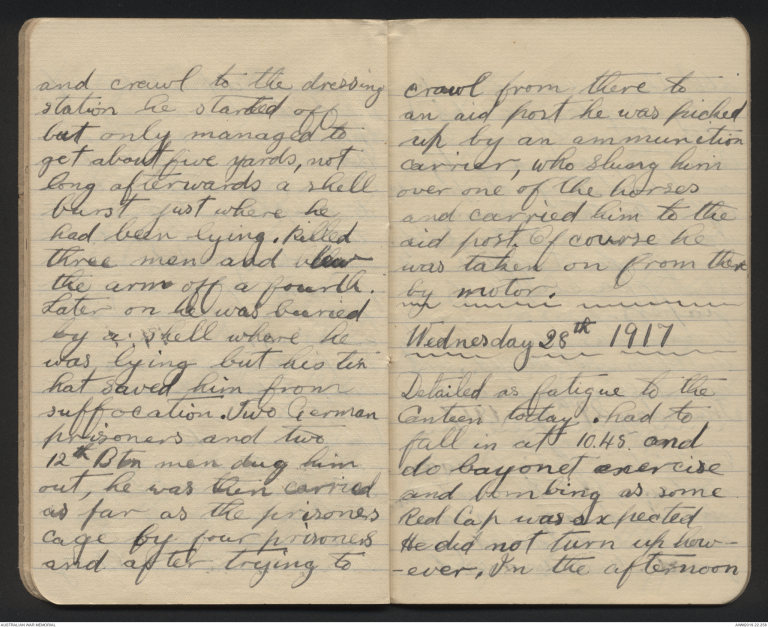 and crawl to the dressing
station he started off
but only managed to
get about five yards, not
long afterwards a shell
burst just where he
had been lying. Killed
three men and blew
the arm off a fourth.
Later on he was buried
by a shell where he
was lying but his tin
hat saved him from
suffocation. Two German
prisoners and two
12th Btn men dug him
out, he was then carried
as far as the prisoners
cage by four prisoners
and after trying to
crawl from there to
an aid post he was picked
up by an ammunition
carrier, who slung him
over one of the horses
and carried him to the
aid post. Of course he
was taken on from there
by motor.
Wednesday 28th 1917
Detailed as fatigue to the
Canteen today. had to
fall in at 10.45. and
do bayonet exercise
and bombing as some
Red Cap was expected
He did not turn up how-
-ever. In the afternoon
AUSTRALIAN WAR MEMORIAL